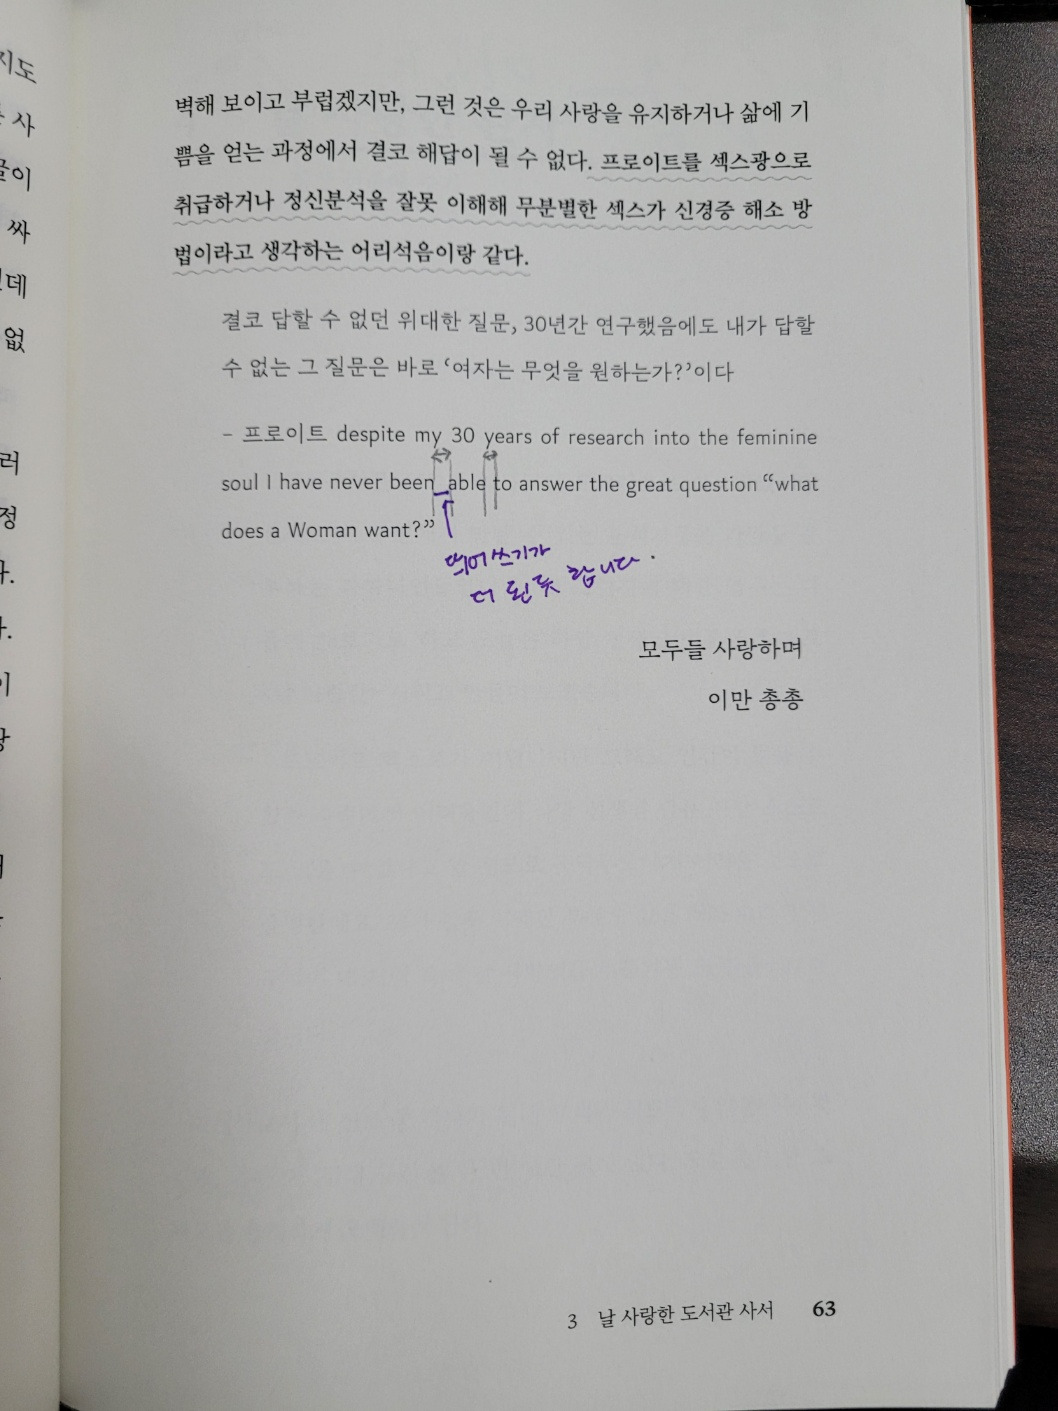 지도
사
글이
싸
데
없
러
정
다.
이
벽해 보이고 부럽겠지만, 그런 것은 우리 사랑을 유지하거나 삶에 기
쁨을 얻는 과정에서 결코 해답이 될 수 없다. 프로이트를 섹스광으로
취급하거나 정신분석을 잘못 이해해 무분별한 섹스가 신경증 해소 방
법이라고 생각하는 어리석음이랑 같다.
결코 답할 수 없던 위대한 질문, 30년간 연구했음에도 내가 답할
수 없는 그 질문은 바로 ‘여자는 무엇을 원하는가?’이다
– 프로이트 despite my 30 years of research into the feminine
soul I have never been able to answer the great question “what
does a Woman want?”
띄어쓰기가
더 된 듯 합니다.
모두들 사랑하며
이만 총총
3 날 사랑한 도서관 사서 63